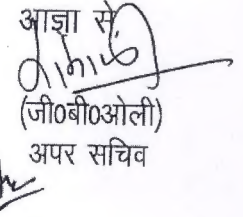 आज्ञा से
(जी0बी0ओली)
अपर सचिव